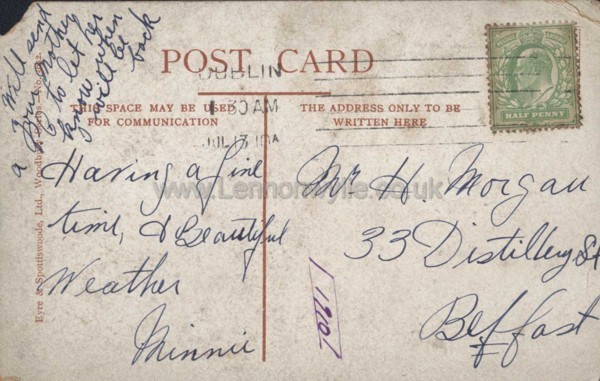 Will send
a line to mother
to let her
know when
I will be
back
POST CARD
DUBLIN
1.30 AM
JUL 13 10
HALF PENNY
THIS SPACE MAY BE USED
FOR COMMUNICATION
THE ADDRESS ONLY TO BE
WRITTEN HERE
Having a fine
time, & Beautiful
Weather
Minnie
Mr H. Morgan
33 Distillery St
Belfast
Eyre & Spottiswoode, Ltd., Woodbury